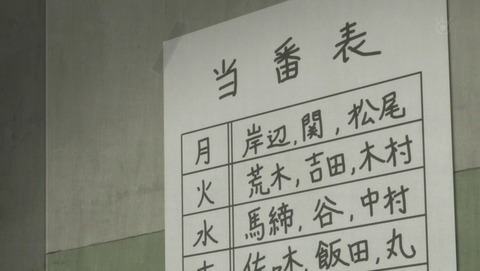 当番表
月 岸辺, 関, 松尾
火 荒木, 吉田, 木村
水 馬締, 谷, 中村
木 佐々木, 飯田, 丸